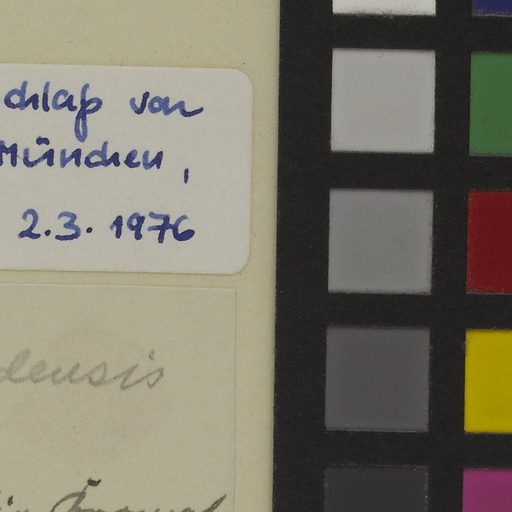 chlaß von
München,
2.3.1976
densis